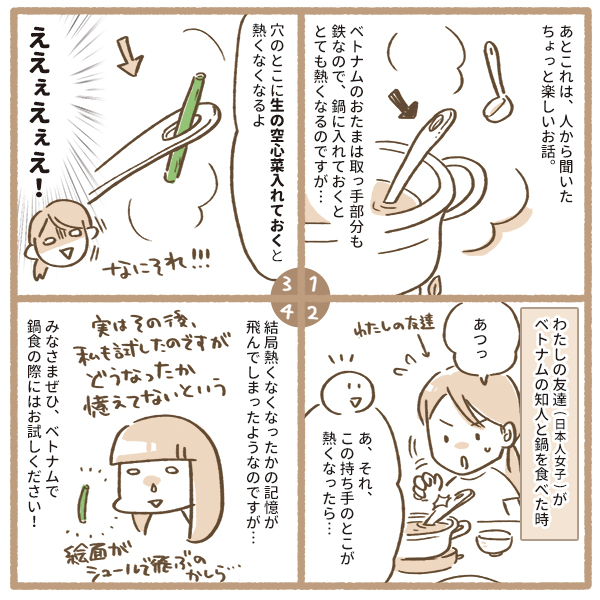 あとこれは、人から聞いた
ちょっと楽しいお話。
ベトナムのおたまは取っ手部分も
鉄なので、鍋に入れておくと
とても熱くなるのですが…
1
わたしの友達（日本人女子）が
ベトナムの知人と鍋を食べた時
あつっ
わたしの友達
あ、それ、
この持ち手のとこが
熱くなったら…
2
穴のとこに生の空心菜入れておくと
熱くなくなるよ
ええぇえぇえ！
なにそれ!!!
3
結局熱くなくなったかの記憶が
飛んでしまったようなのですが…
実はその後、
私も試したのですが
どうなったか
憶えてないという
絵面が
シュールで飛ぶの
かしら…
みなさまぜひ、ベトナムで
鍋食の際にはお試しください！
4